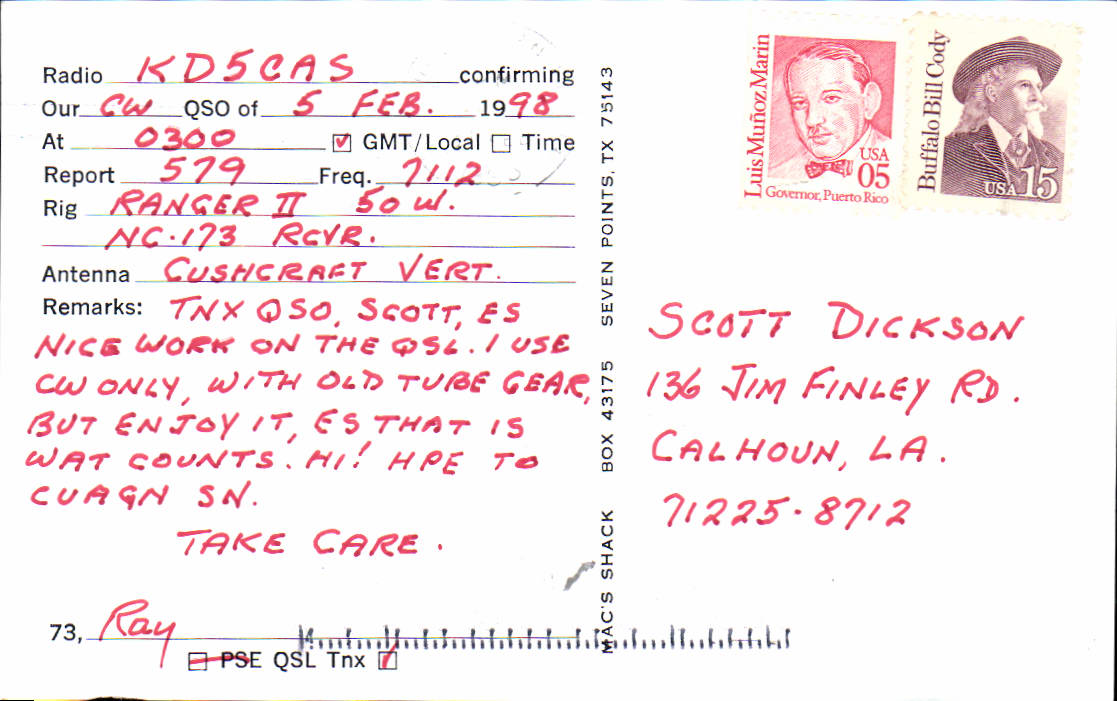 Radio KD5CAS confirming
Our CW QSO of 5 FEB. 1998
At 0300 GMT/Local Time
Report 579 Freq. 7112
Rig RANGER II 50 W.
NC-173 RCVR.
Antenna CUSHCRAFT VERT.
Remarks: TNX QSO, SCOTT, ES
NICE WORK ON THE QSL. I USE
CW ONLY, WITH OLD TUBE GEAR,
BUT ENJOY IT, ES THAT IS
WAT COUNTS. HI! HPE TO
CUAGN SN.
TAKE CARE.
73, Ray
PSE QSL Tnx
MAC'S SHACK BOX 43175 SEVEN POINTS, TX 75143
Luis Muñoz Marin
USA
05
Governor, Puerto Rico
Buffalo Bill Cody
USA 15
SCOTT DICKSON
136 JIM FINLEY RD.
CALHOUN, LA.
71225-8712